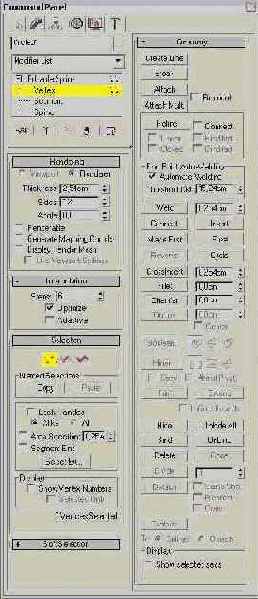 Command Panel
Modifier List
Editable Spline
Vertex
Segment
Spline
Rendering
Viewport Renderer
Thickness
Sides
Angle
Renderable
Generate Mapping Coords
Display Render Mesh
Use Viewport Settings
Interpolation
Steps: 6
Optimize
Adaptive
Selection
Named Selections:
Copy Paste
Lock Handles
Alike All
Area Selection:
Segment End
Select By...
Display
Show Vertex Numbers
Selected Only
Soft Selection
Geometry
Create Line
Break
Attach Reorient
Attach Mult.
Refine Connect
Linear
Closed
End Point Auto-Welding
Automatic Welding
Weld
Connect Insert
Make First Fuse
Reverse Cycle
CrossInsert
Fillet
Chamfer
Outline
Center
Boolean
Mirror
Copy About Pivot
Trim Extend
Infinite Bounds
Hide Unhide All
Bind Unbind
Delete Close
Divide
Detach Same Shp
Reorient
Copy
Explode
To: Splines Objects
Display
Show selected segs